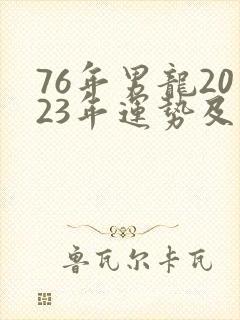 76年男龍20
23年運勢及
魯瓦尔卡瓦